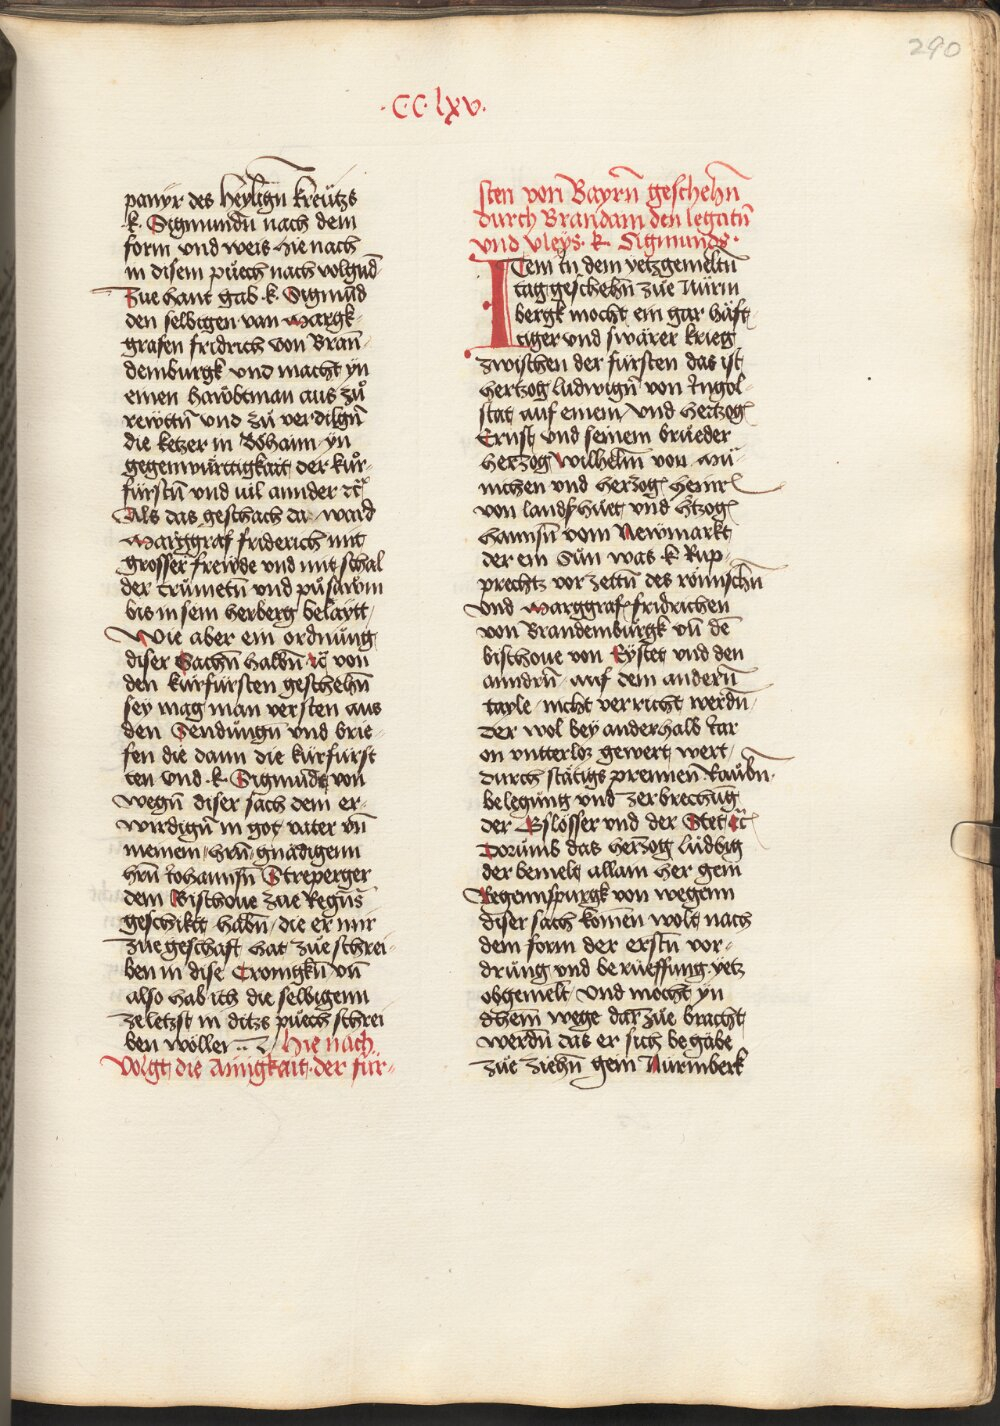 290
·CC·lxv·
panyr des heyligñ kreützs
·k· Sigmundñ nach dem
form vnd weis hie nach
in disem püech nach volgnd̄
Zue hant gab ·k· Sigmūd
den selbigen van margk-
grafen fridrich von Bran̄-
demburgk vnd macht yn
einen hawbtman aus zů
rewttñ vnd zů verdilgñ
die ketzer in Böhaim yn
gegenwürttigkait der kůr-
fürstñ vnd uil annder ⁊c̃
Als das geschach da ward
marggraf friderich mit
grosser frewde vnd mit schal
der trümetñ vnd pusawm
bis in sein herberg belaytt
Wie aber ein ordnüng
diser sachñ halbñ ⁊c̃ von
den kurfürsten geschehñ
sey mag man versten aus
den Sendüngñ vnd brie-
fen die dann die kürfürst
ten vnd ·k· Sigmunds von
wegñ diser sach dem er-
wirdigñ in got vater vñ
meinem hrñ gnädigenn
hrñ Johannsñ Streperger
dem Bischoue züe Regñs
geschikt habñ die er mir
züe geschaft hat züe schrei-
ben in dise Cronigkñ vñ
also hab ich die selbigenn
ze letzst in ditzs püech schrei
ben wöllen Hie nach
volgt die Ainigkait der für-
sten von Bayrñ geschehñ
durch Brandam den legatñ
vnd vleys ·k· Sigmunds·
Item in dem yetzgemeltñ
tag geschehñ züe Nürm
bergk mocht ein gar häft
tiger vnd swärer krieg
zwischen der fürsten das ist
hertzog ludwigñ von Ingol-
stat auf einem vnd hertzog
Ernst vnd seinem brüeder
hertzog wilhelm von mü-
nichen vnd hertzog heinr
von landshüet vnd htzog
hannsñ vom Newmarkt
der ein sün was ·k· Rup-
prechtz vor zeittñ des römischñ
vnd marggraf fridrichen
von Brandemburgk vñ dē
bischoue von Eystet vnd den
anndrñ auf dem anderñ
tayle nicht verricht werdñ
der wol bey anderhalb iar
on vntterlos gewert wert
durch stätigs prennen Raubñ
belegüng vnd zerbrechūg
der Gslösser vnd der Stet ⁊c̃
Dorümb das hertzog lüdbig
der bemelt allain her gein
Regennspurgk von wegenn
diser sach komen wolt nach
dem form der erstñ vor-
drüng vnd berüeffung yetz
obgemelt vnd mocht yn
dhein wege dar züe bracht
werdñ das er sich begäbe
züe ziehñ gein Nürmberk